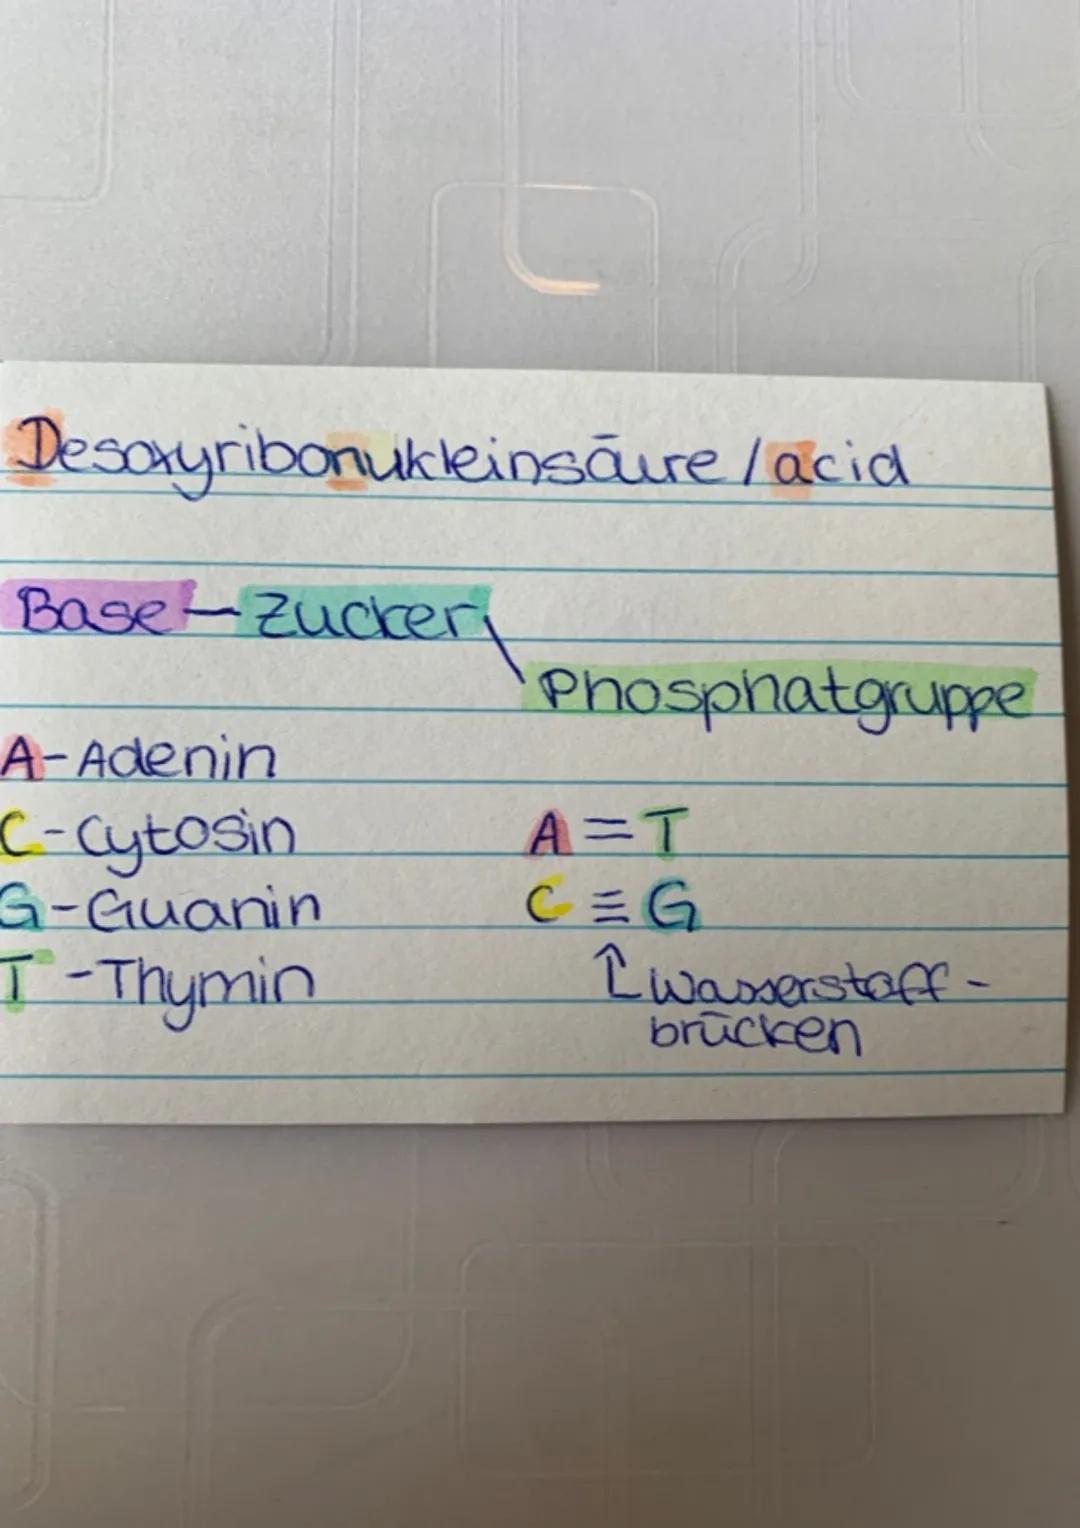 Desoxyribonukleinsäure / acid
Base — Zucker
Phosphatgruppe
A - Adenin
C - Cytosin
G - Guanin
T - Thymin
A = T
C ≡ G
↑ Wasserstoff-
brücken